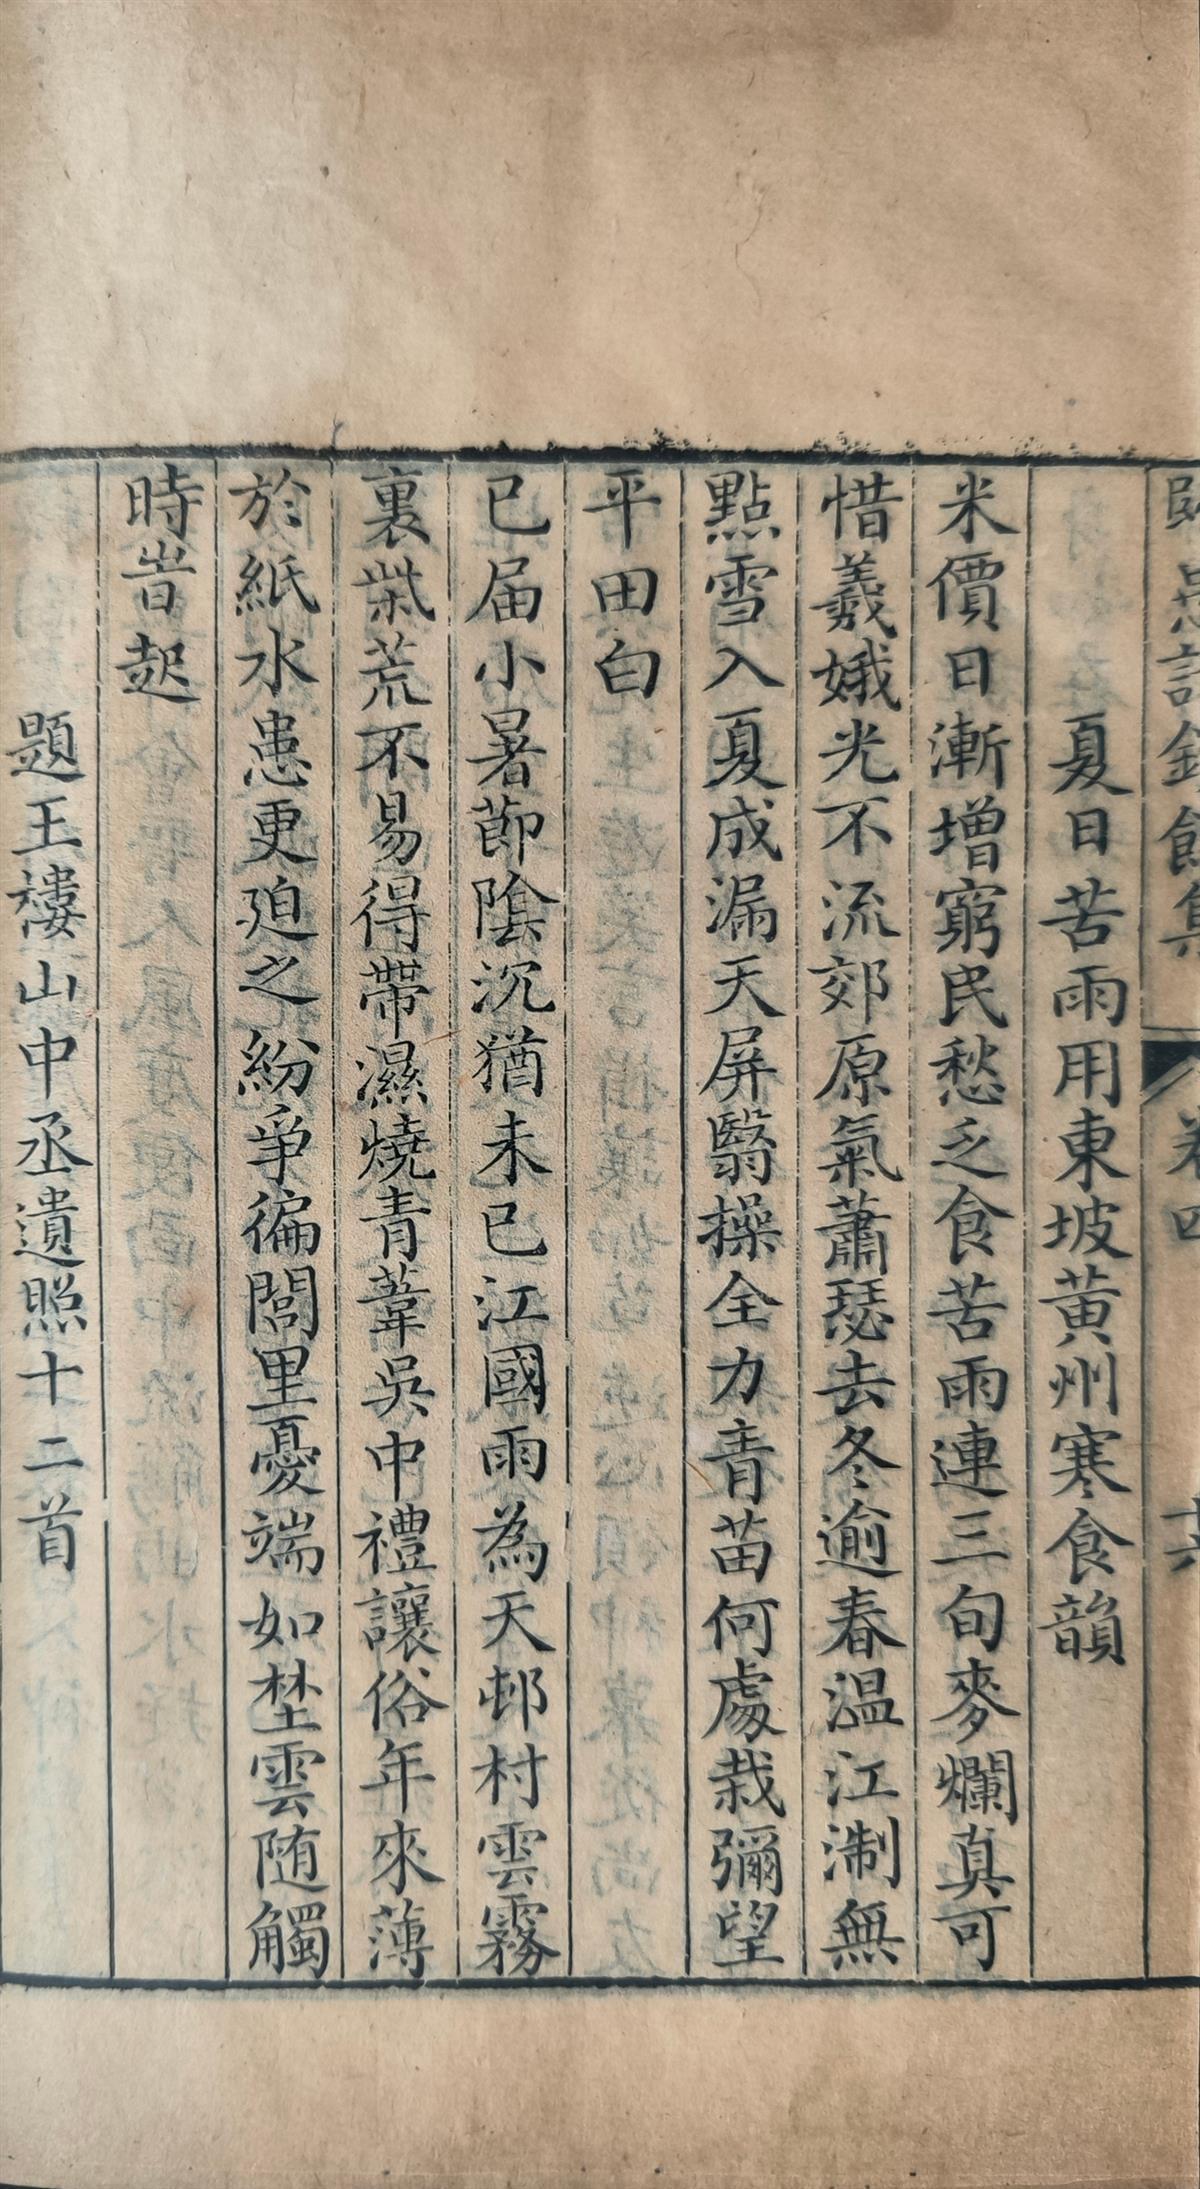 思計錄飲集 卷四 十六
夏日苦雨用東坡黃州寒食韻
米價日漸增窮民愁乏食苦雨連三旬麥爛真可
惜羲娥光不流郊原氣蕭瑟去冬逾春溫江淛無
點雪入夏成漏天屏翳操全力青苗何處栽彌望
平田白
已屆小暑節陰沉猶未已江國雨為天邨村雲霧
裏柴荒不易得帶濕燒青葦吳中禮讓俗年來薄
於紙水患更廹之紛爭徧閭里憂端如埜雲随觸
時岩起
題王樓山中丞遺照十二首